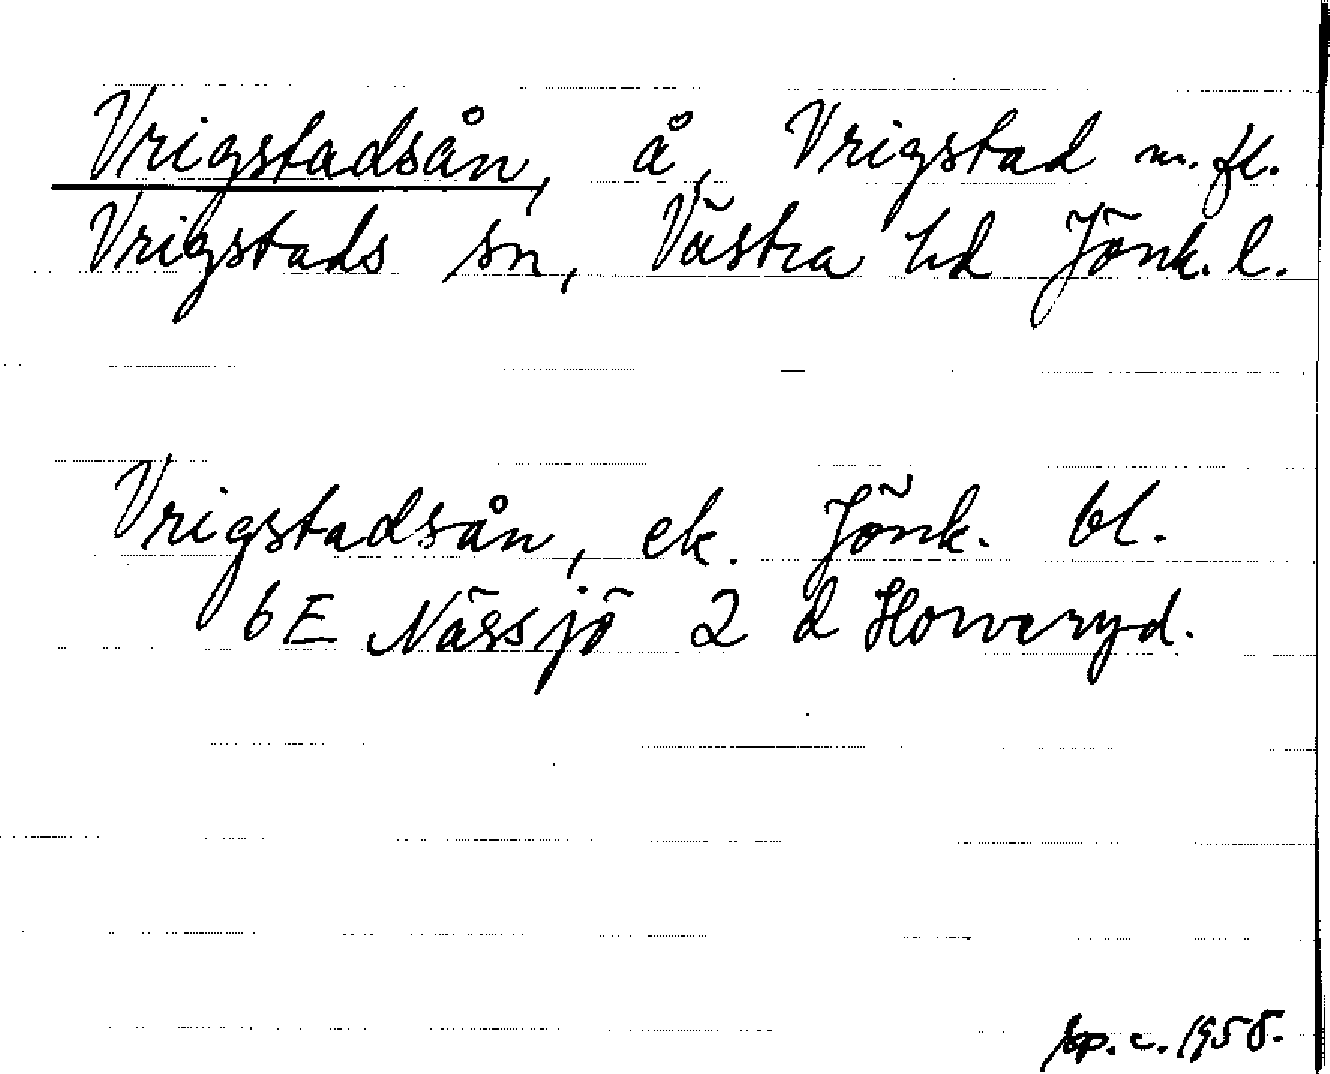 Vrigstadsån, å, Vrigstad m. fl.
Vrigstads sn, Västra hd Jönk. l.
Vrigstadsån, ek. Jönk. bl.
6 E Nässjö 2 d Horveryd.
c. 1955.